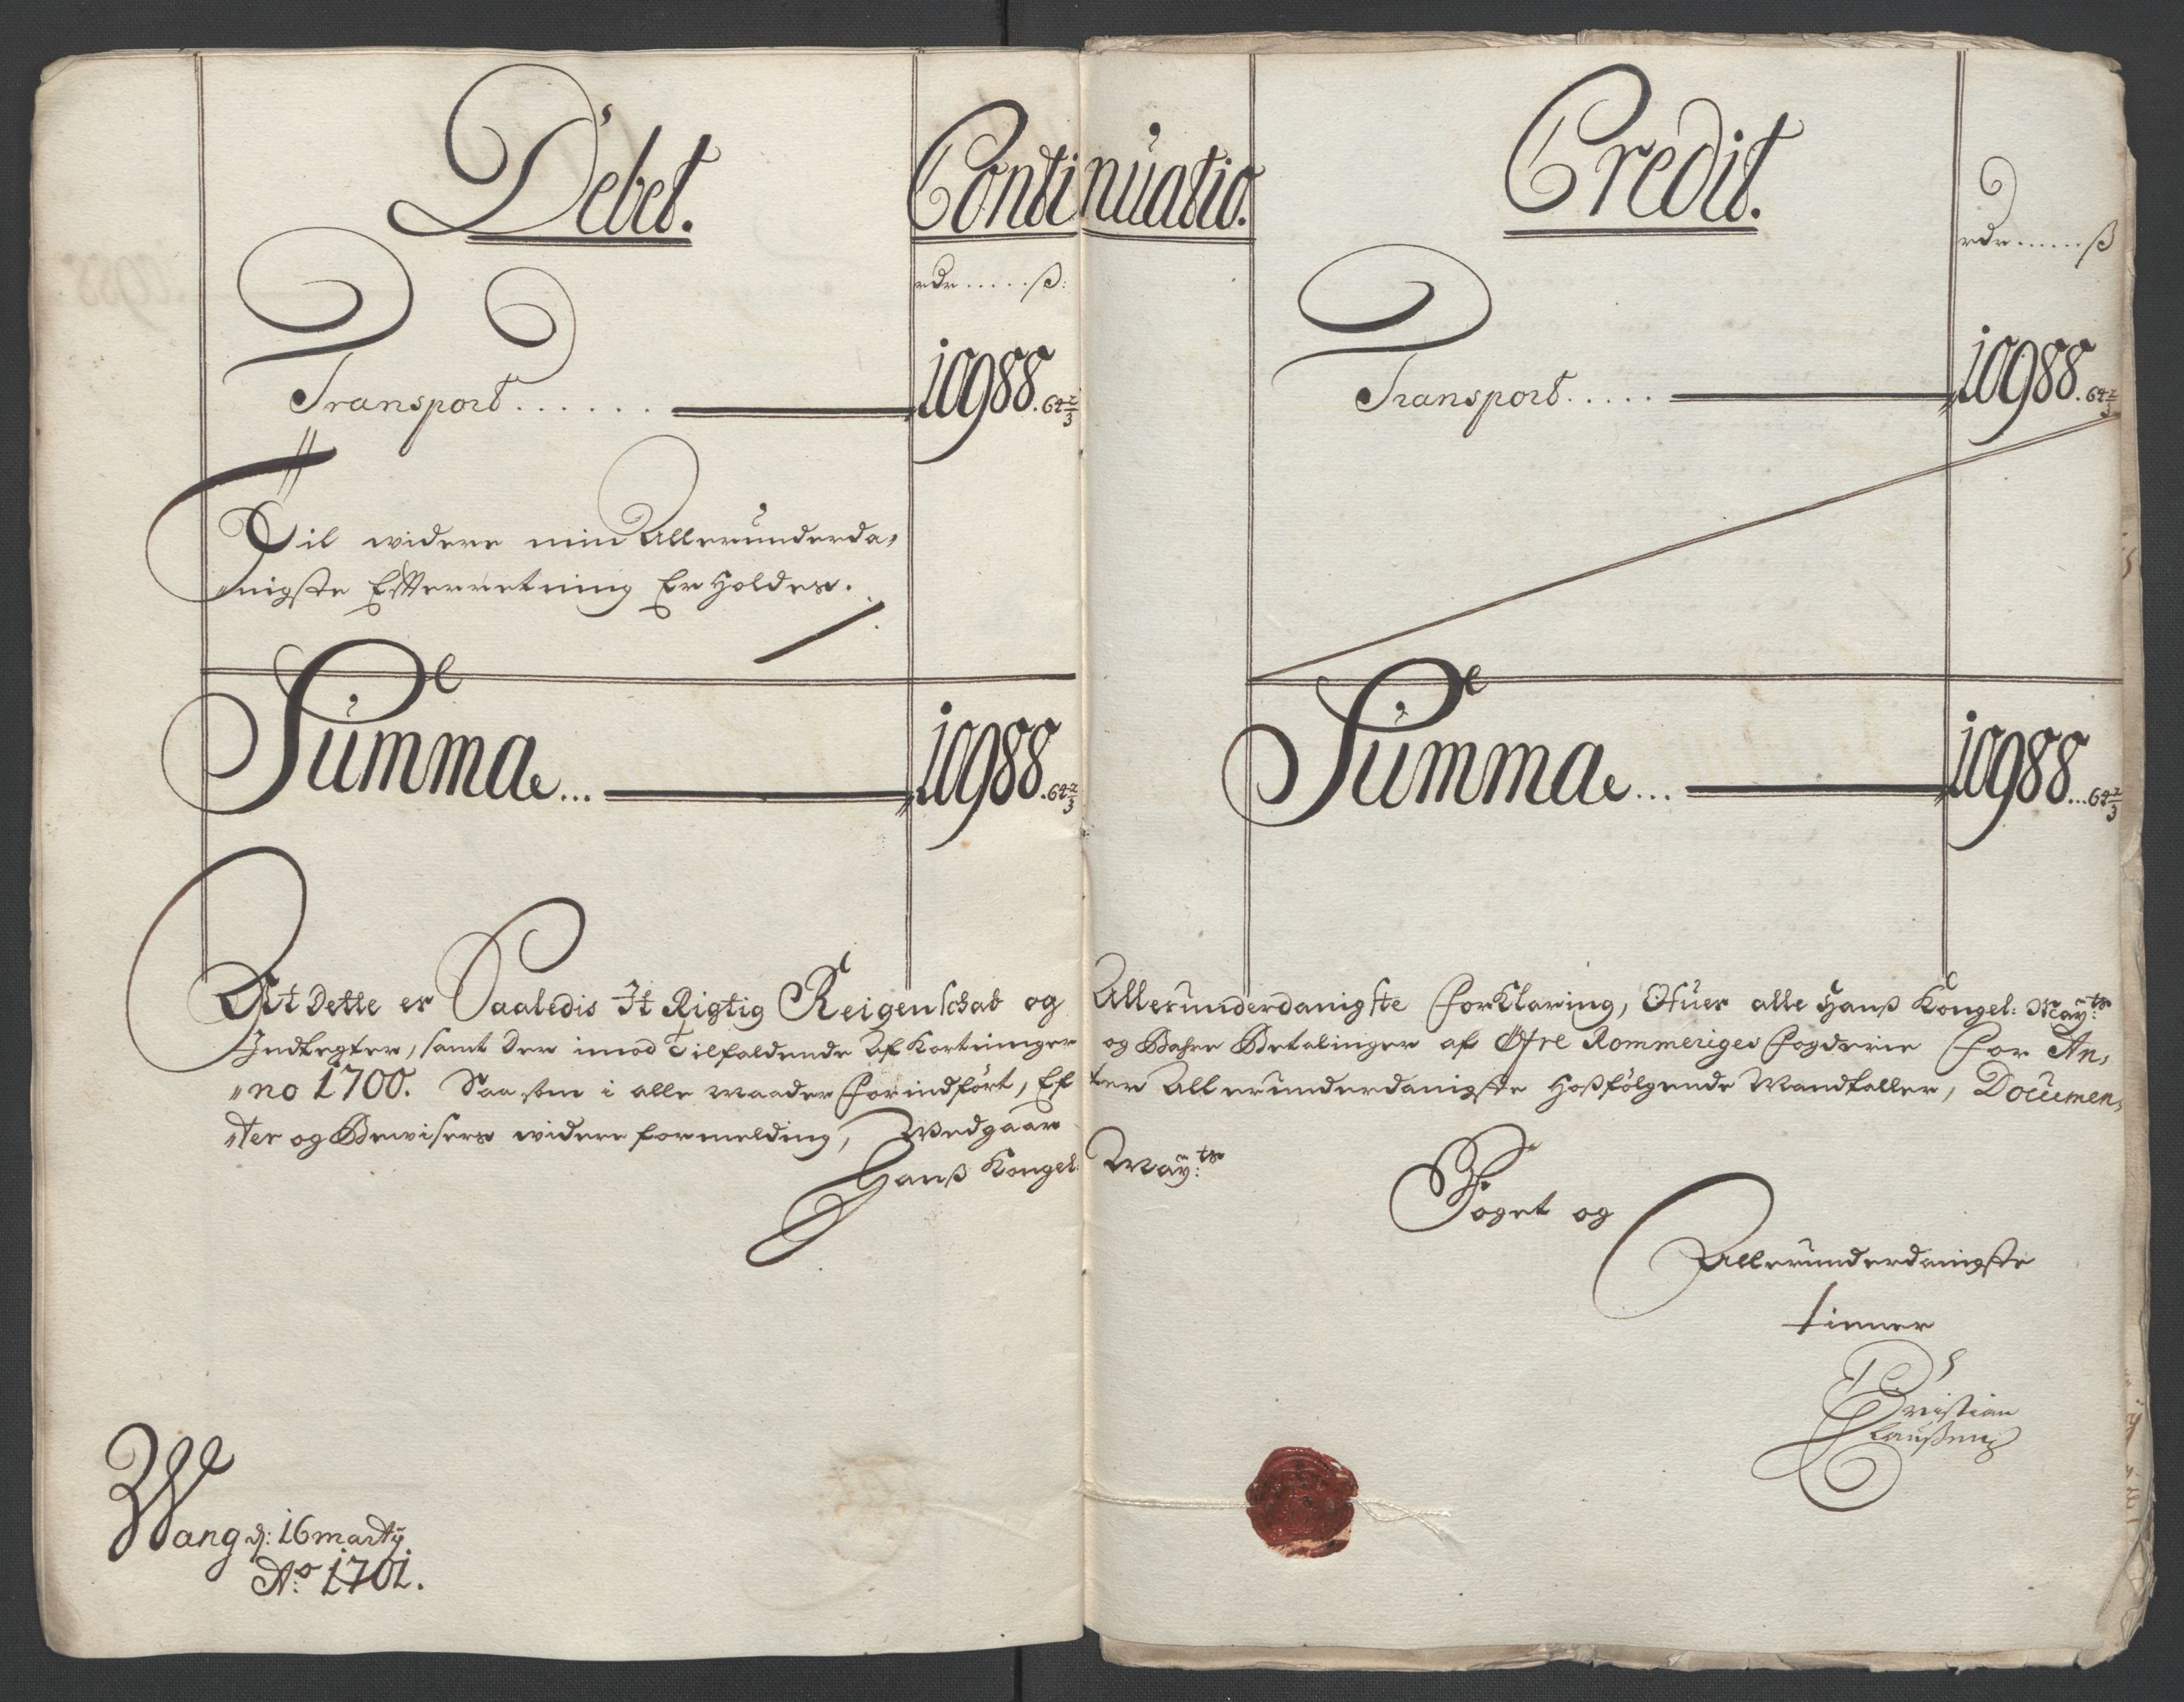 Debet.
Continuatio.
rdr.....ß:
Transport...... 10988. 64 2/3
Til widere min Allerunderda„
„nigste Efterretning Erholdes.
Summa... 10988. 64 2/3
Credit.
rdr.....ß
Transport..... 10988. 64 2/3
Summa... 10988... 64 2/3
At Dette er Saaledis It Rigtig Reigenschab og Allerunderdanigste forklaring, Ofuer alle Hanß Kongel: Mayts:
Indtegter, samt der imod Tilfaldende Af Kortninger og Bahre Betalinger af Øfre Rommeriges fogderie for An„
„no 1700. Saa som i alle maader for indført, Efter Allerunderdanigste Hoßfølgende Mandtaller, Documen„
„ter og Bewisers widere formelding, Wedgaar
Hanß Kongel: Mayts:
Foget og
Allerunderdanigste
tienner
Christian
Claußen
Wang d: 16 marty
Ao: 1701.